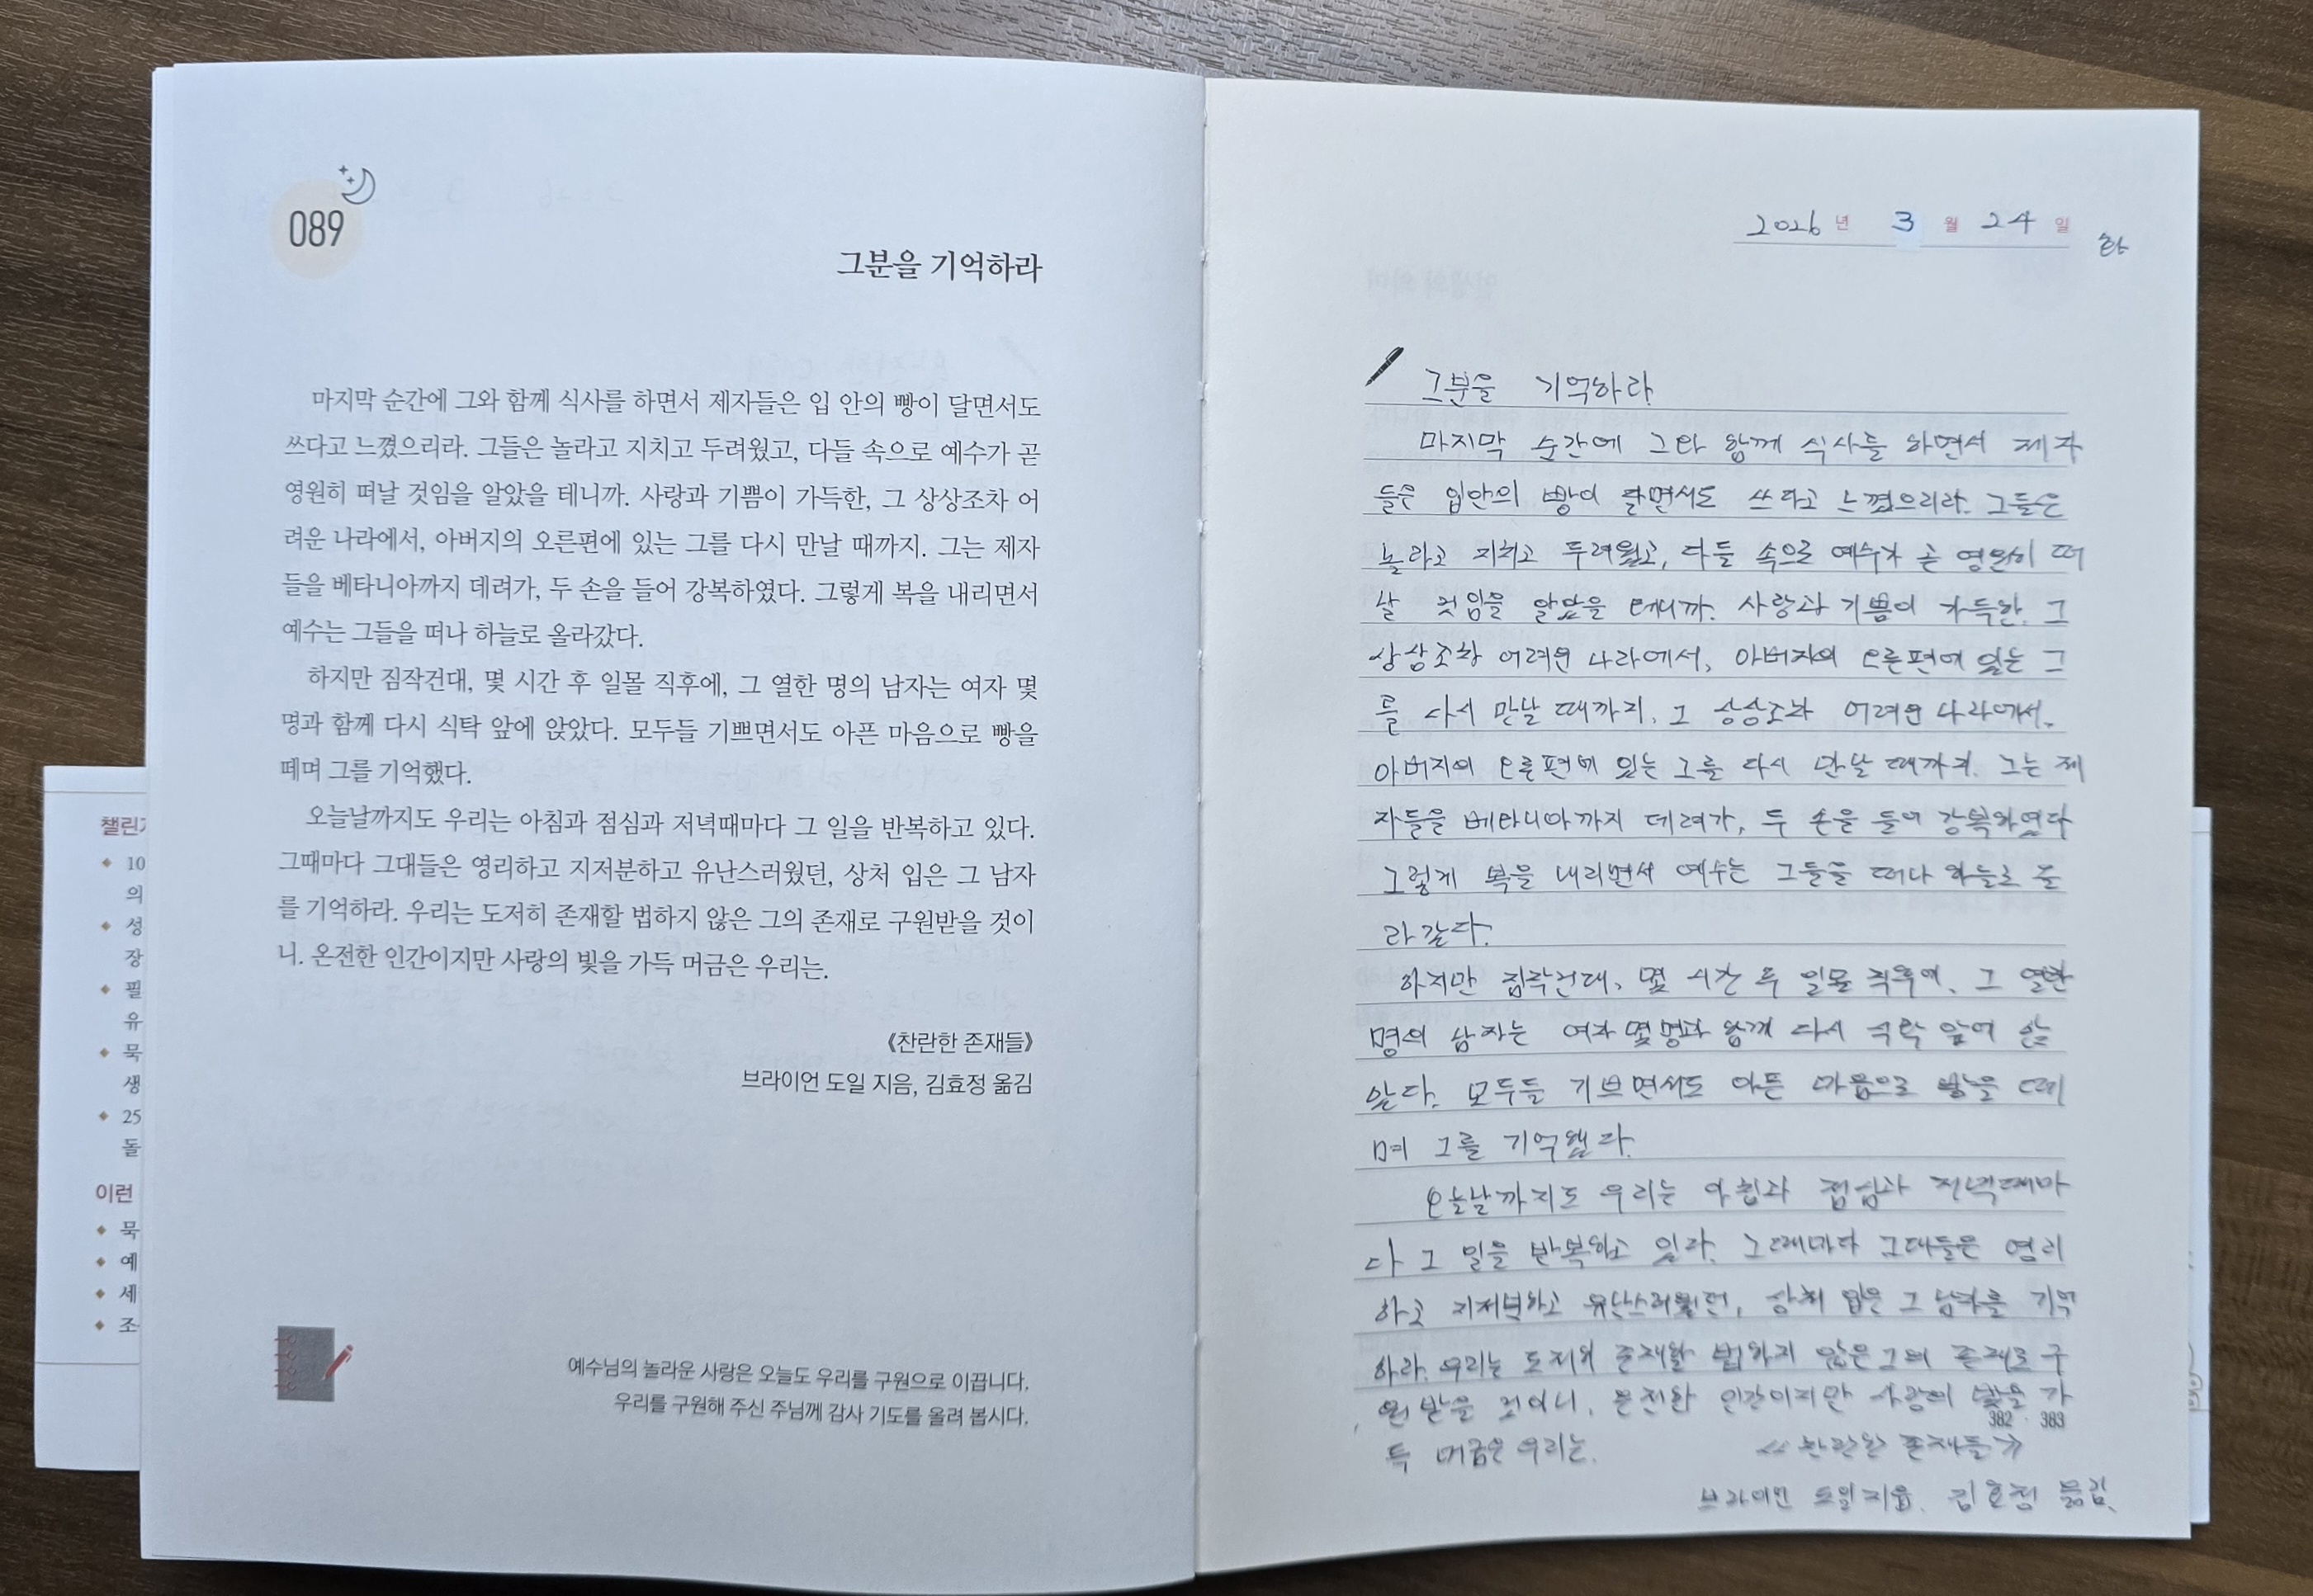 089
그분을 기억하라
마지막 순간에 그와 함께 식사를 하면서 제자들은 입 안의 빵이 달면서도
쓰다고 느꼈으리라. 그들은 놀라고 지치고 두려웠고, 다들 속으로 예수가 곧
영원히 떠날 것임을 알았을 테니까. 사랑과 기쁨이 가득한, 그 상상조차 어
려운 나라에서, 아버지의 오른편에 있는 그를 다시 만날 때까지. 그는 제자
들을 베타니아까지 데려가, 두 손을 들어 강복하였다. 그렇게 복을 내리면서
예수는 그들을 떠나 하늘로 올라갔다.
하지만 짐작건대, 몇 시간 후 일몰 직후에, 그 열한 명의 남자는 여자 몇
명과 함께 다시 식탁 앞에 앉았다. 모두들 기쁘면서도 아픈 마음으로 빵을
떼며 그를 기억했다.
오늘날까지도 우리는 아침과 점심과 저녁때마다 그 일을 반복하고 있다.
그때마다 그대들은 영리하고 지저분하고 유난스러웠던, 상처 입은 그 남자
를 기억하라. 우리는 도저히 존재할 법하지 않은 그의 존재로 구원받을 것이
니. 온전한 인간이지만 사랑의 빛을 가득 머금은 우리는.
《찬란한 존재들》
브라이언 도일 지음, 김효정 옮김
예수님의 놀라운 사랑은 오늘도 우리를 구원으로 이끕니다.
우리를 구원해 주신 주님께 감사 기도를 올려 봅시다.
챌린지
10
의
성
장
필
유
묵
생
25
돌
이런
묵
예
세
조
2026년 3월 24일 화
그분을 기억하라
마지막 순간에 그와 함께 식사를 하면서 제자
들은 입안의 빵이 달면서도 쓰다고 느꼈으리라. 그들은
놀라고 지치고 두려웠고, 다들 속으로 예수가 곧 영원히 떠
날 것임을 알았을 테니까. 사랑과 기쁨이 가득한, 그
상상조차 어려운 나라에서, 아버지의 오른편에 있는 그
를 다시 만날 때까지, 그 상상조차 어려운 나라에서,
아버지의 오른편에 있는 그를 다시 만날 때까지. 그는 제
자들을 베타니아까지 데려가, 두 손을 들어 강복하였다
그렇게 복을 내리면서 예수는 그들을 떠나 하늘로 올
라갔다.
하지만 짐작건대, 몇 시간 후 일몰 직후에, 그 열한
명의 남자는 여자 몇명과 함께 다시 식탁 앞에 앉
았다. 모두들 기쁘면서도 아픈 마음으로 빵을 떼
며 그를 기억했다.
오늘날까지도 우리는 아침과 점심과 저녁때마
다 그 일을 반복하고 있다. 그때마다 그대들은 영리
하고 지저분하고 유난스러웠던, 상처 입은 그 남자를 기억
하라. 우리는 도저히 존재할 법하지 않은 그의 존재로 구
원 받을 것이니, 온전한 인간이지만 사랑의 빛을 가
382 · 383
득 머금은 우리는. 《찬란한 존재들》
브라이언 도일 지음, 김효정 옮김.